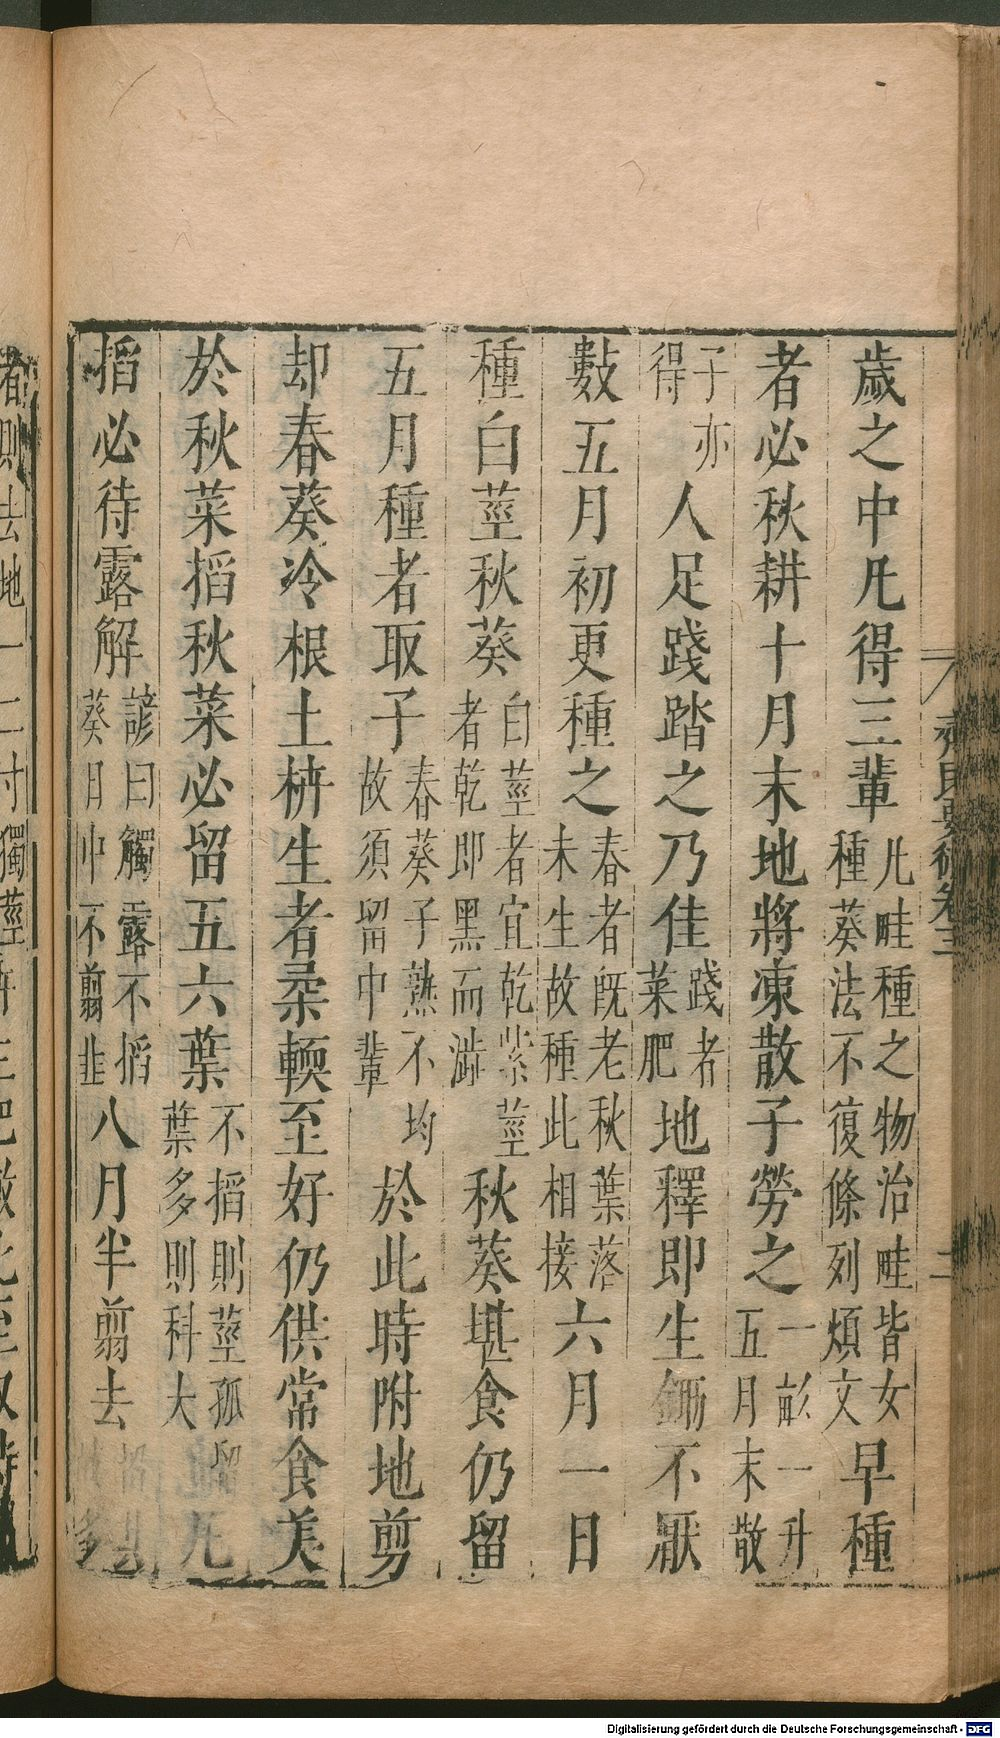 歲之中凡得三輩凡畦種之物治畦皆女種葵法不復條列煩文早種
者必秋耕十月末地將凍散子勞之一畝一升五月末散
子亦得人足踐踏之乃佳踐者菜肥地釋即生鋤不厭
數五月初更種之春者既老秋葉落未生故種此相接六月一日
種白莖秋葵白莖者宜乾紫莖者乾即黑而澁秋葵堪食仍留
五月種者取子春葵子熟不均故須留中輩於此時附地剪
却春葵冷根土枿生者柔輭至好仍供常食美
於秋菜搯秋菜必留五六葉不搯則莖孤留葉多則科大凡
搯必待露解諺曰觸露不搯葵日中不剪韭八月半剪去
齊民要術卷三
二
者則去地一二寸獨莖
Digitalisierung gefördert durch die Deutsche Forschungsgemeinschaft - DFG